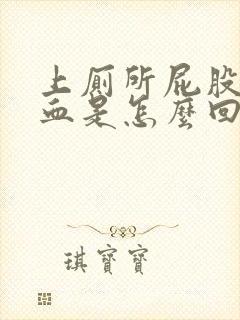 上厕所屁股
血是怎麼回
琪寶寶